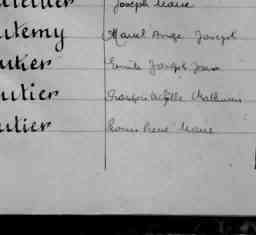 Joseph Marie
utemy Marcel Ange Joseph
utier Emile Joseph
utier François Achille
utier Louis René Marie